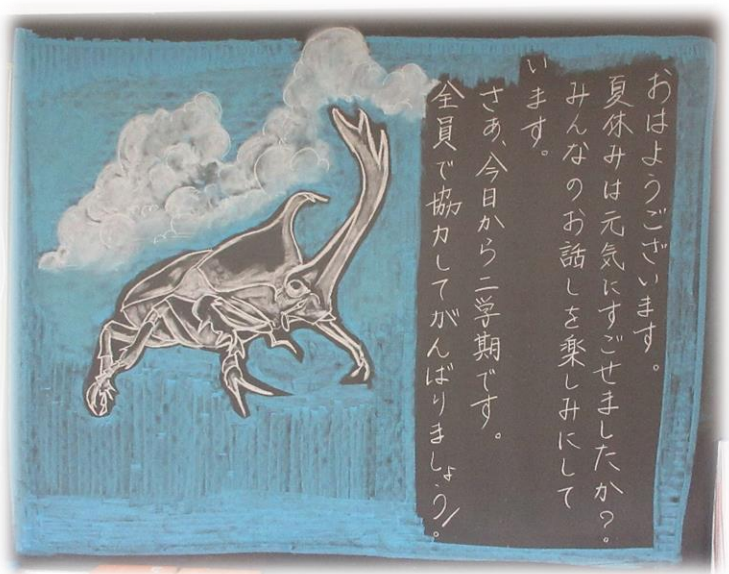 おはようございます。
夏休みは元気にすごせましたか?。
みんなのお話しを楽しみにして
います。
さあ、今日から二学期です。
全員で協力してがんばりましょう!。